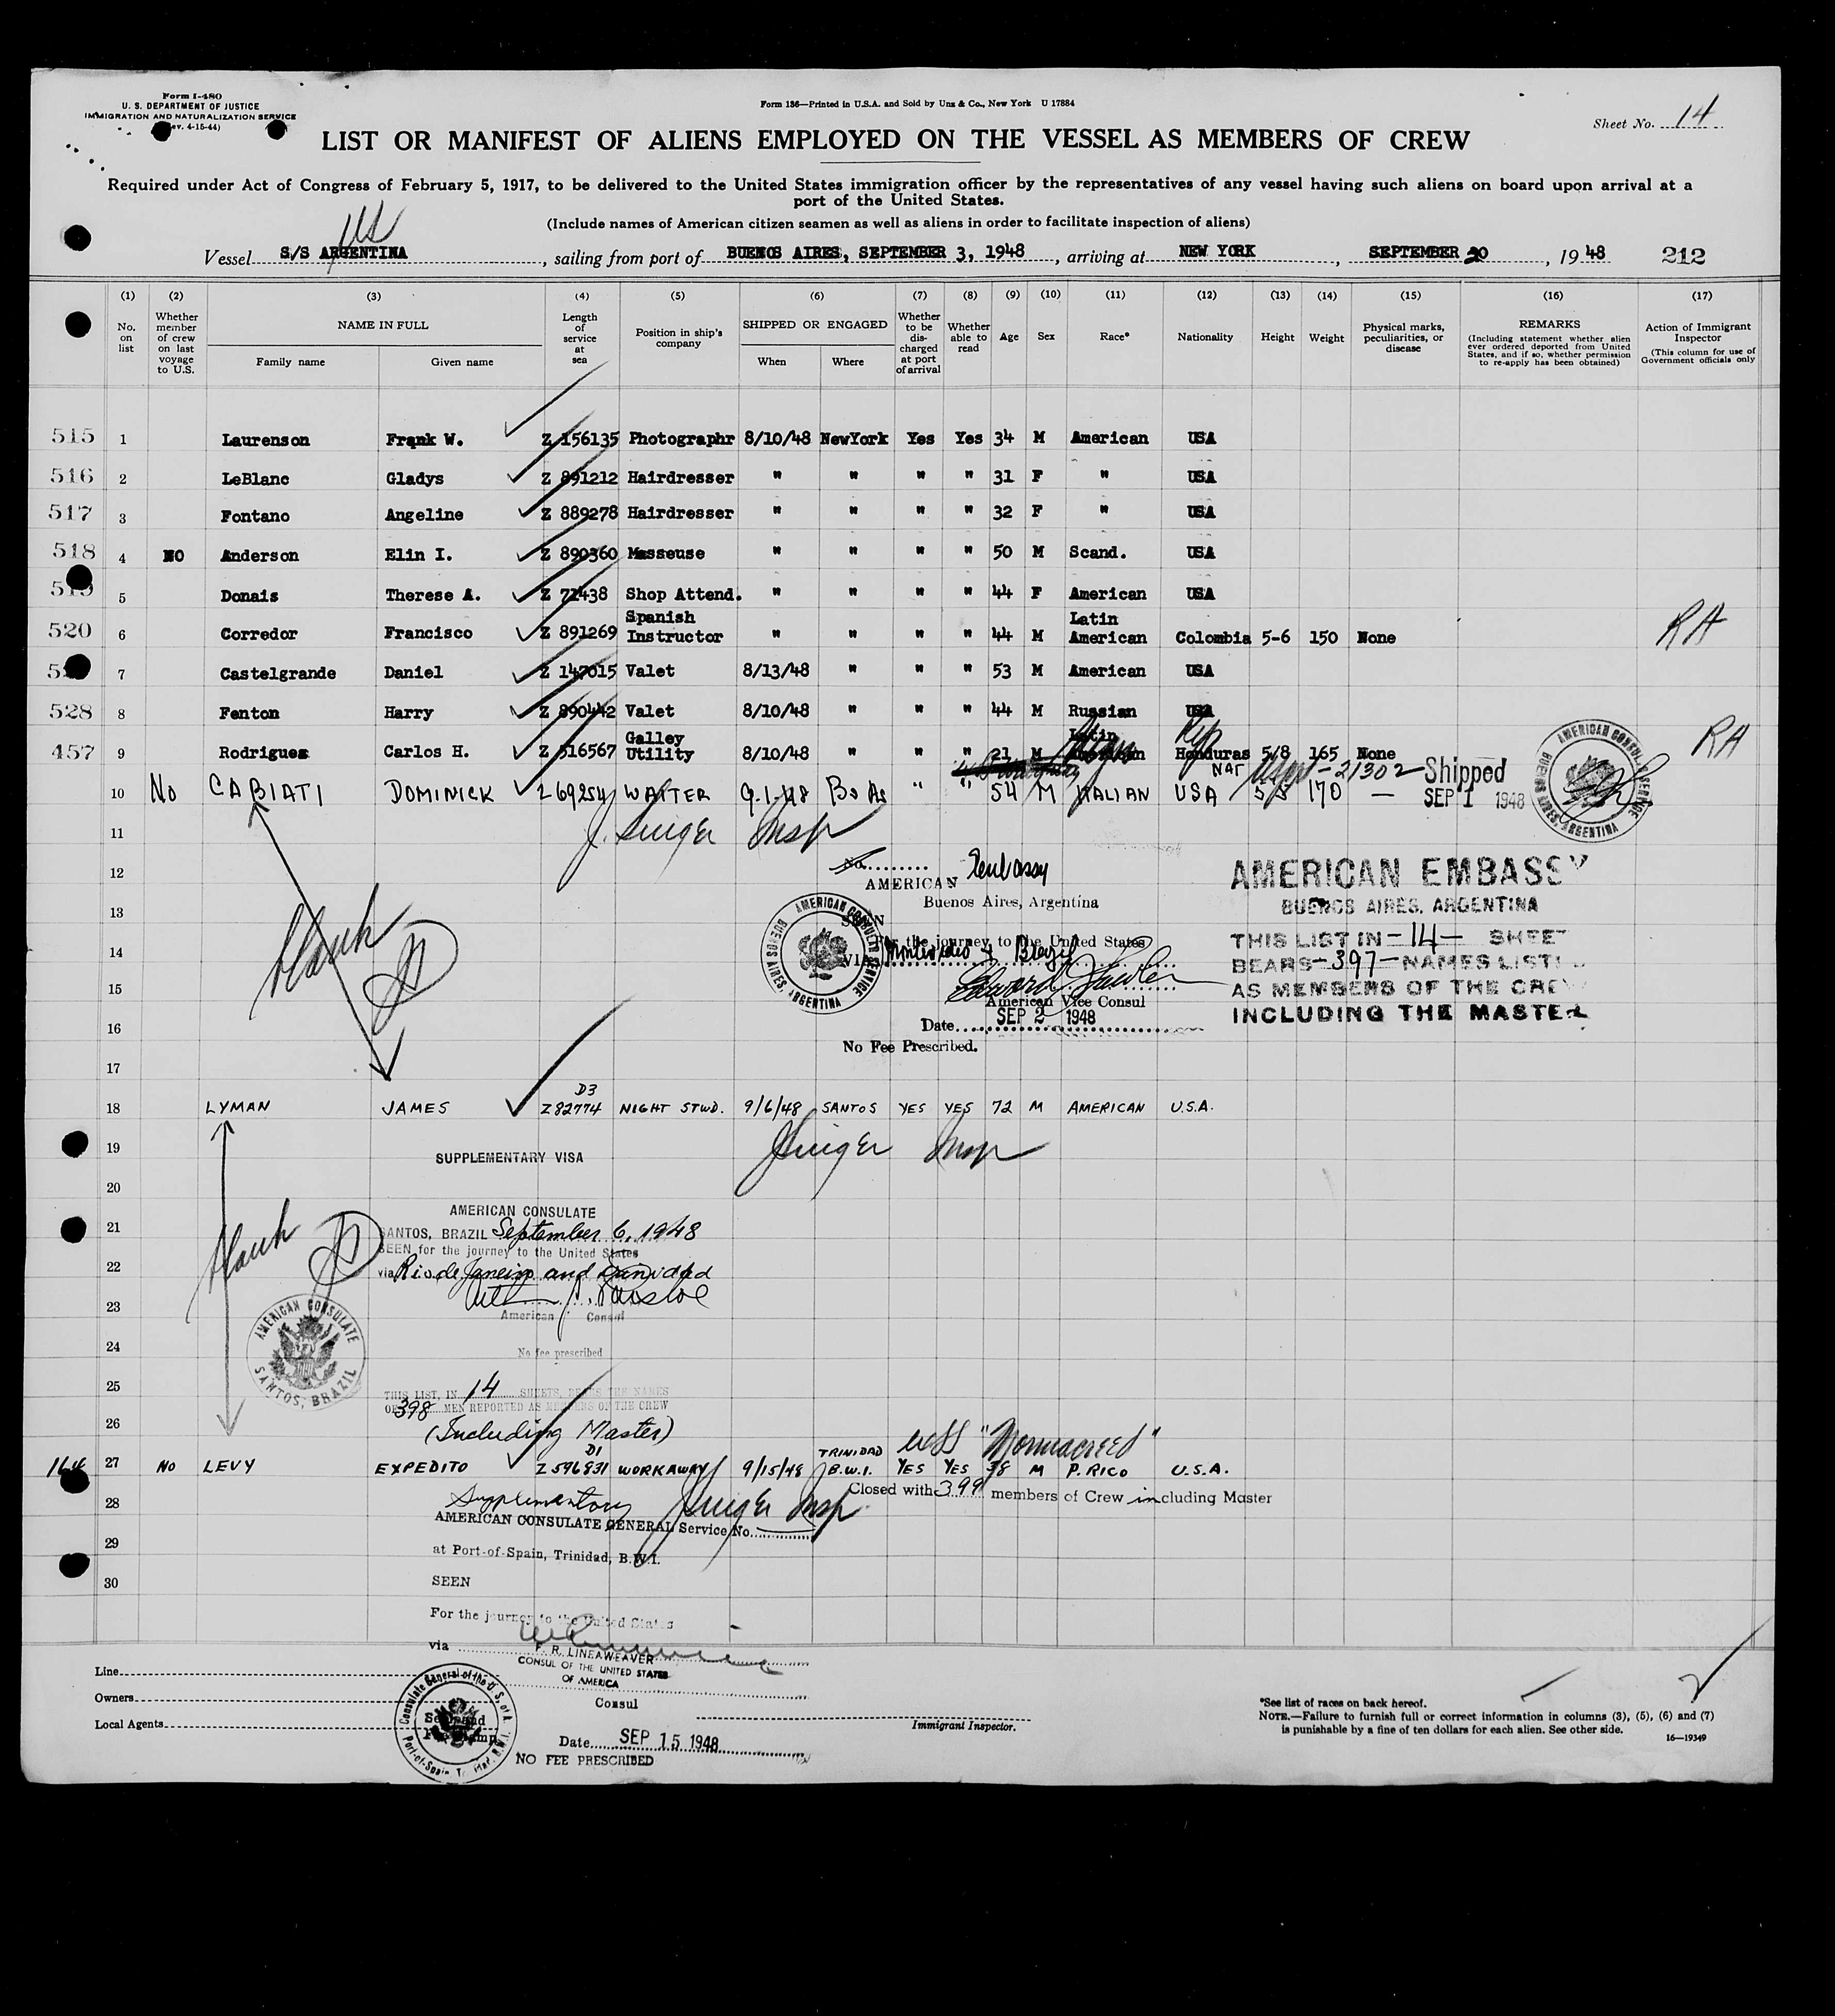 Form I-480
U. S. DEPARTMENT OF JUSTICE
IMMIGRATION AND NATURALIZATION SERVICE
ev. 4-15-44)
Form 136—Printed in U.S.A. and Sold by Unz & Co., New York U 17884
Sheet No. 14
LIST OR MANIFEST OF ALIENS EMPLOYED ON THE VESSEL AS MEMBERS OF CREW
Required under Act of Congress of February 5, 1917, to be delivered to the United States immigration officer by the representatives of any vessel having such aliens on board upon arrival at a
port of the United States.
(Include names of American citizen seamen as well as aliens in order to facilitate inspection of aliens)
Vessel S/S ARGENTINA, sailing from port of BUENOS AIRES, SEPTEMBER 3, 1948, arriving at NEW YORK, SEPTEMBER 20, 19 48 212
(1) (2) (3) (4) (5) (6) (7) (8) (9) (10) (11) (12) (13) (14) (15) (16) (17)
No. on list
Whether member of crew on last voyage to U.S.
NAME IN FULL
Family name Given name
Length of service at sea
Position in ship's company
SHIPPED OR ENGAGED
When Where
Whether to be discharged at port of arrival
Whether able to read
Age Sex Race* Nationality Height Weight
Physical marks, peculiarities, or disease
REMARKS
(Including statement whether alien ever ordered deported from United States, and if so, whether permission to re-apply has been obtained)
Action of Immigrant Inspector
(This column for use of Government officials only
515 1 Laurenson Frank W. Z 156135 Photographr 8/10/48 NewYork Yes Yes 34 M American USA
516 2 LeBlanc Gladys Z 891212 Hairdresser " " " " 31 F " USA
517 3 Fontano Angeline Z 889278 Hairdresser " " " " 32 F " USA
518 4 NO Anderson Elin I. Z 890360 Masseuse " " " " 50 M Scand. USA
519 5 Donais Therese A. Z 72438 Shop Attend. " " " " 44 F American USA
520 6 Corredor Francisco Z 891269 Spanish Instructor " " " " 44 M Latin American Colombia 5-6 150 None RA
7 Castelgrande Daniel Z 147015 Valet 8/13/48 " " " 53 M American USA
528 8 Fenton Harry Z 890442 Valet 8/10/48 " " " 44 M Russian USA
457 9 Rodriguez Carlos H. Z 516567 Galley Utility 8/10/48 " " " 21 M Latin American Honduras 5/8 165 None RA
NAT 21302 Shipped
10 No CABIATI DOMINICK Z 69254 WAITER 9-1-48 Bs As " " 54 M ITALIAN USA 170 — SEP 1 1948
AMERICAN CONSULAR SERVICE
BUENOS AIRES, ARGENTINA
11 J. Singer Insp
12
13
14
15
16
17
No.
AMERICAN Embassy
Buenos Aires, Argentina
SEEN
for the journey to the United States
VIA Montevideo & Brazil
American Vice Consul
Date SEP 2 1948
No Fee Prescribed.
AMERICAN CONSULAR SERVICE
BUENOS AIRES, ARGENTINA
AMERICAN EMBASSY
BUENOS AIRES, ARGENTINA
THIS LIST IN -14- SHEET
BEARS -397- NAMES LIST
AS MEMBERS OF THE CREW
INCLUDING THE MASTER
D3
18 LYMAN JAMES Z82774 NIGHT STWD. 9/6/48 SANTOS YES YES 72 M AMERICAN U.S.A.
19 Singer Insp
SUPPLEMENTARY VISA
20
21
22
23
24
25
26
AMERICAN CONSULATE
SANTOS, BRAZIL September 6, 1948
SEEN for the journey to the United States
via Rio de Janeiro and Trinidad
American Consul
No fee prescribed
AMERICAN CONSULATE
SANTOS, BRAZIL
THIS LIST, IN 14 SHEETS, BEARS THE NAMES
OF 398 MEN REPORTED AS MEMBERS OF THE CREW
(Including Master)
D1
164 27 NO LEVY EXPEDITO Z 596831 WORKAWAY 9/15/48 TRINIDAD B.W.I. YES YES 38 M P. RICO U.S.A.
Closed with 399 members of Crew including Master
28 Supplementary Singer Insp
AMERICAN CONSULATE GENERAL Service No.
29 at Port-of-Spain, Trinidad, B.W.I.
30 SEEN
For the journey to the United States
via
F. R. LINEAWEAVER
CONSUL OF THE UNITED STATES
OF AMERICA
Consul
Date SEP 15 1948
NO FEE PRESCRIBED
Line
Owners
Local Agents
Immigrant Inspector.
*See list of races on back hereof.
NOTE.—Failure to furnish full or correct information in columns (3), (5), (6) and (7)
is punishable by a fine of ten dollars for each alien. See other side.
16—19349